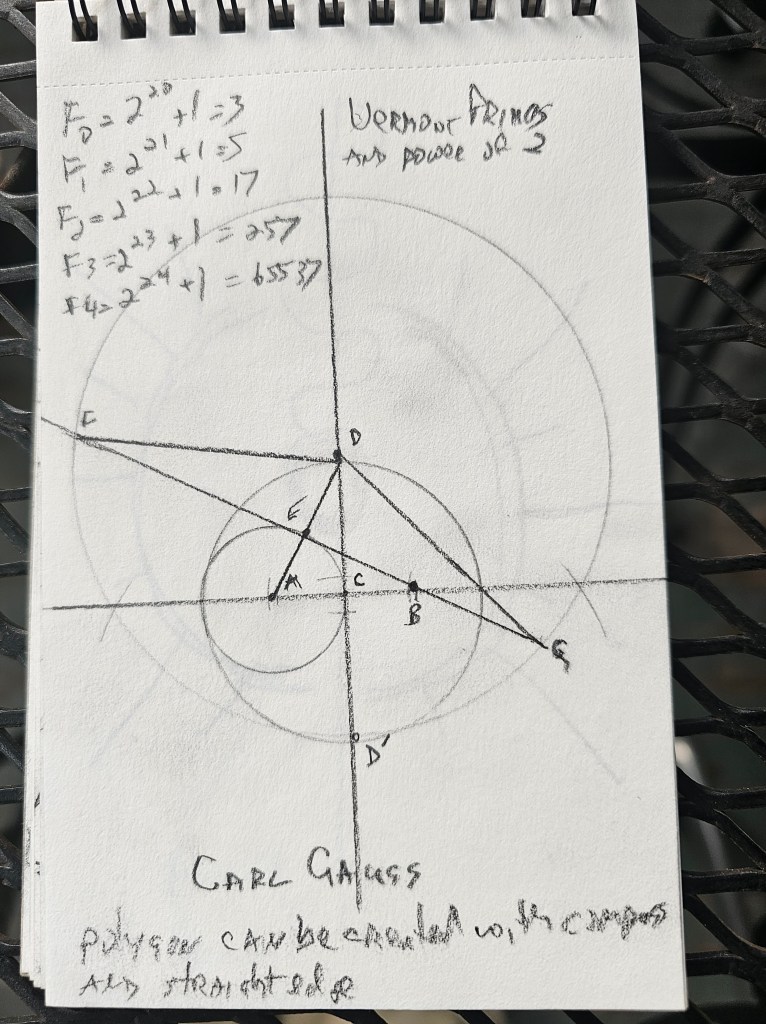 F₀ = 2^2^0 + 1 = 3
F₁ = 2^2^1 + 1 = 5
F₂ = 2^2^2 + 1 = 17
F3 = 2^2^3 + 1 = 257
F4 = 2^2^4 + 1 = 65537
PRIMES
AND power of 2
F
D
E
A
C
B
G
D'
CARL GAUSS
polygon CAN be created with compass
AND straight edge